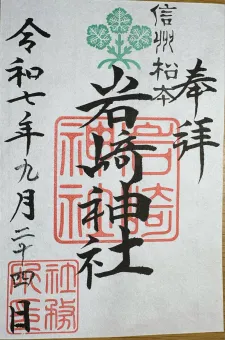 奉拝
信州松本
岩崎神社
岩崎神社
令和七年九月二十四日
社務